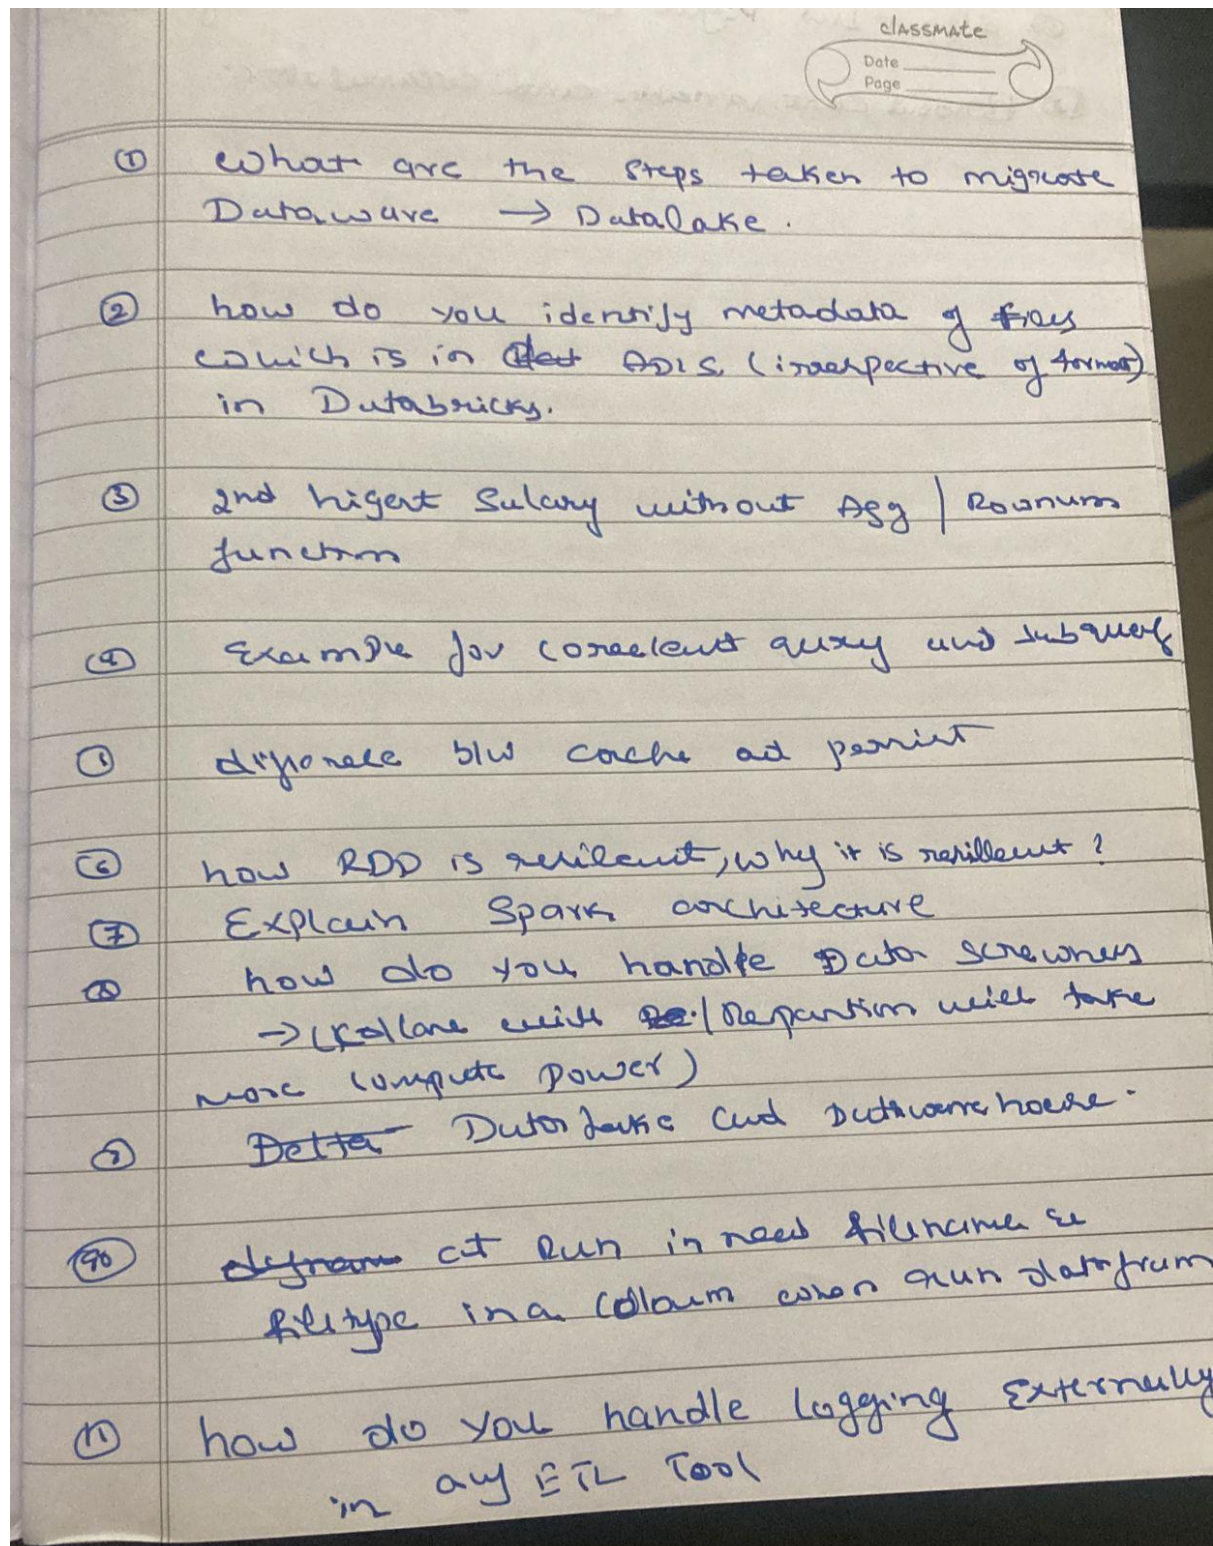 classmate
Date
Page
① What are the steps taken to migrate
Dataware → Datalake.
② how do you identify metadata of files
which is in ADLS (irrespective of format)
in Databricks.
③ 2nd higest Salary without Agg | Rownum
function
④ Example for corelent query and subquery
diffonece b/w cache ad persist
⑥ how RDD is resilent, why it is resillent ?
⑦ Explain Spark architecture
⑧ how do you handle Data screwness
→ ( with / Repartion will take
more compute power)
⑨ Delta Data lake and Datawarehouse.
⑩ at Run in need filename &
filetype in a Coloum when run datafram
⑪ how do you handle logging Externally
in any ETL Tool